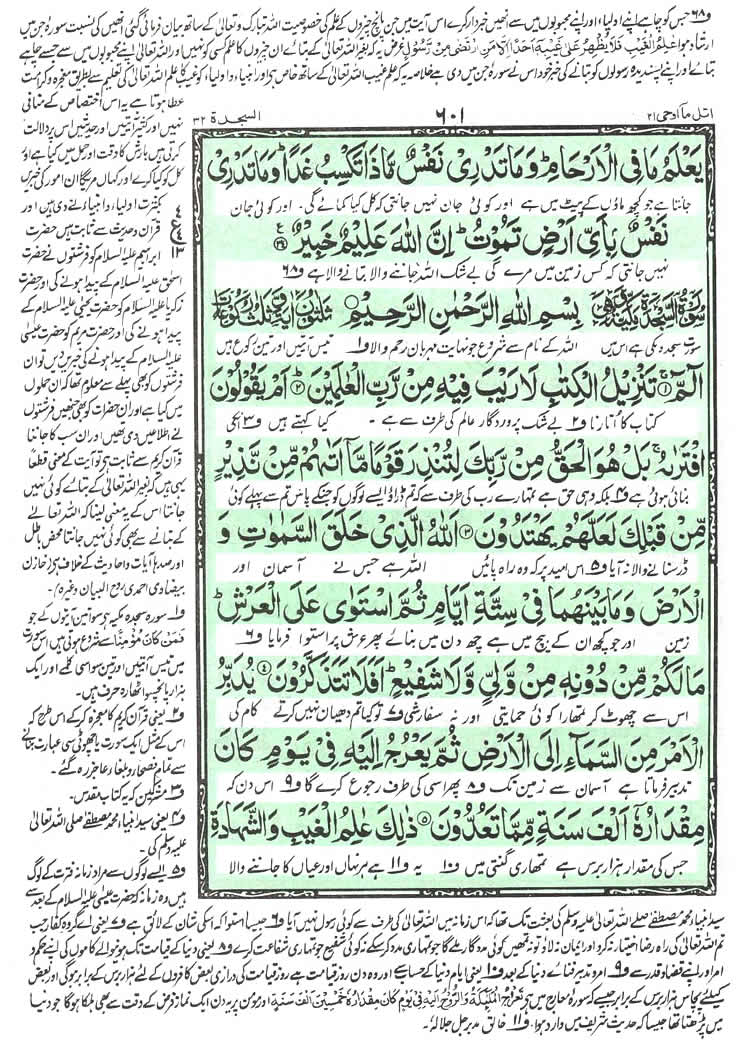 و۶۸ جس کو چاہے اپنے اولیا، اور اپنے محبوبوں میں سے انھیں خبردار کرے اس آیت میں جن پانچ چیزوں کے علم کی خصوصیت اللہ تبارک وتعالیٰ کے ساتھ بیان فرمائی گئی انھیں کی نسبت سورۂ جن میں
ارشاد ہوا عٰلِمُ الْغَیْبِ فَلَا یُظْهِرُ عَلٰی غَیْبِهٖٓ اَحَدًا اِلَّا مَنِ ارْتَضٰی مِنْ رَّسُوْلٍ غرض یہ کہ بغیر اللہ تعالیٰ کے بتائے ان چیزوں کا علم کسی کو نہیں اور اللہ تعالیٰ اپنے محبوبوں میں سے جسے چاہے
بتائے اور اپنے پسندیدہ رسولوں کو بتانے کی خبر خود اس نے سورۂ جن میں دی ہے خلاصہ یہ کہ علم غیب اللہ تعالیٰ کے ساتھ خاص ہے اور انبیا، واولیا، کو غیب کا علم اللہ تعالیٰ کی تعلیم سے بطریق معجزہ وکرامت
عطا ہوتا ہے یہ اس اختصاص کے منافی
نہیں اور کثیر آیتیں اور حدیثیں اس پر دلالت
کرتی ہیں بارش کا وقت اور حمل میں کیا ہے اور
کل کو کیا کرے اور کہاں مریگا ان امور کی خبریں
بکثرت اولیا، وانبیا، نے دی ہیں اور
قرآن وحدیث سے ثابت ہیں حضرت
ابراہیم علیہ السلام کو فرشتوں نے حضرت
اسحٰق علیہ السلام کے پیدا ہونے کی اور حضرت
زکریا علیہ السلام کو حضرت یحییٰ علیہ السلام کے
پیدا ہونے کی اور حضرت مریم کو حضرت عیسیٰ
علیہ السلام کے پیدا ہونے کی خبریں دیں تو ان
فرشتوں کو بھی پہلے سے معلوم تھا کہ ان حملوں
میں کیا ہے اور ان حضرات کو بھی جنھیں فرشتوں
نے اطلاعیں دی تھیں اور ان سب کا جاننا
قرآن کریم سے ثابت ہے تو آیت کے معنی قطعاً
یہی ہیں کہ بغیر اللہ تعالیٰ کے بتائے کوئی نہیں
جانتا اس کے یہ معنی لینا کہ اللہ تعالیٰ کے
بتانے سے بھی کوئی نہیں جانتا محض باطل
اور صدہا آیات واحادیث کے خلاف ہے (خازن
بیضاوی احمدی روح البیان وغیرہ)
و۱ سورہ سجدہ مکیہ ہے سوا تین آیتوں کے جو
اَفَمَنْ كَانَ مُؤْمِنًا سے شروع ہوتی ہیں اس سورت
میں تیس آیتیں اور تین سو اسی کلمے اور ایک
ہزار پانچ سو اٹھارہ حرف ہیں۔
و۲ یعنی قرآن کریم کا معجزہ کرکے اس طرح کہ
اس کے مثل ایک سورت یا چھوٹی سی عبارت بنانے
سے تمام فصحاء وبلغاء عاجز رہ گئے۔
و۳ مشرکین کہ یہ کتاب مقدس۔
و۴ یعنی سید انبیا، محمد مصطفٰے صلی اللہ تعالیٰ
علیہ وسلم کی۔
و۵ ایسے لوگوں سے مراد زمانہ فترت کے لوگ
ہیں وہ زمانہ کہ حضرت عیسیٰ علیہ السلام کے بعد سے
اتل مآ اوحی ۲۱
۶۰۱
السجدۃ ۳۲
یَعْلَمُ مَا فِی الْاَرْحَامِ ؕ وَ مَا تَدْرِیْ نَفْسٌ مَّاذَا تَكْسِبُ غَدًا ؕ وَ مَا تَدْرِیْ
جانتا ہے جو کچھ ماؤں کے پیٹ میں ہے اور کوئی جان نہیں جانتی کہ کل کیا کمائے گی۔ اور کوئی جان
نَفْسٌۢ بِاَیِّ اَرْضٍ تَمُوْتُ ؕ اِنَّ اللّٰهَ عَلِیْمٌ خَبِیْرٌ ۠
نہیں جانتی کہ کس زمین میں مرے گی بے شک اللہ جاننے والا بتانے والا ہے و۶۸
سُوْرَۃُ السَّجْدَۃِ مَكِّیَّۃٌ بِسْمِ اللّٰهِ الرَّحْمٰنِ الرَّحِیْمِ
سورت سجدہ مکی ہے اس میں اللہ کے نام سے شروع جو نہایت مہربان رحم والا و۱ تیس آیتیں اور تین رکوع ہیں
الٓمّٓ ۚ۝۱ تَنْزِیْلُ الْكِتٰبِ لَا رَیْبَ فِیْهِ مِنْ رَّبِّ الْعٰلَمِیْنَ ؕ۝۲ اَمْ یَقُوْلُوْنَ
کتاب کا اتارنا و۲ بے شک پروردگار عالم کی طرف سے ہے۔ کیا کہتے ہیں و۳ انکی
افْتَرٰىهُ ۚ بَلْ هُوَ الْحَقُّ مِنْ رَّبِّكَ لِتُنْذِرَ قَوْمًا مَّاۤ اَتٰىهُمْ مِّنْ نَّذِیْرٍ
بنائی ہوئی ہے و۴ بلکہ وہی حق ہے تمہارے رب کی طرف سے کہ تم ڈراؤ ایسے لوگوں کو جنکے پاس تم سے پہلے کوئی
مِّنْ قَبْلِكَ لَعَلَّهُمْ یَهْتَدُوْنَ ۝۳ اَللّٰهُ الَّذِیْ خَلَقَ السَّمٰوٰتِ وَ
ڈر سنانے والا نہ آیا و۵ اس امید پر کہ وہ راہ پائیں اللہ ہے جس نے آسمان اور
الْاَرْضَ وَ مَا بَیْنَهُمَا فِیْ سِتَّةِ اَیَّامٍ ثُمَّ اسْتَوٰی عَلَی الْعَرْشِ ؕ
زمین اور جو کچھ ان کے بیچ میں ہے چھ دن میں بنائے پھر عرش پر استوا فرمایا و۶
مَا لَكُمْ مِّنْ دُوْنِهٖ مِنْ وَّلِیٍّ وَّ لَا شَفِیْعٍ ؕ اَفَلَا تَتَذَكَّرُوْنَ ۝۴ یُدَبِّرُ
اس سے چھوٹ کر تمھارا کوئی حمایتی اور نہ سفارشی و۷ تو کیا تم دھیان نہیں کرتے کام کی
الْاَمْرَ مِنَ السَّمَآءِ اِلَی الْاَرْضِ ثُمَّ یَعْرُجُ اِلَیْهِ فِیْ یَوْمٍ كَانَ
تدبیر فرماتا ہے آسمان سے زمین تک و۸ پھر اسی کی طرف رجوع کرے گا و۹ اس دن کہ
مِقْدَارُهٗۤ اَلْفَ سَنَةٍ مِّمَّا تَعُدُّوْنَ ۝۵ ذٰلِكَ عٰلِمُ الْغَیْبِ وَ الشَّهَادَةِ
جس کی مقدار ہزار برس ہے تمھاری گنتی میں و۱۰ یہ و۱۱ ہے ہر نہاں اور عیاں کا جاننے والا
سید انبیا، محمد مصطفٰے صلی اللہ تعالیٰ علیہ وسلم کی بعثت تک تھا کہ اس زمانہ میں اللہ تعالیٰ کی طرف سے کوئی رسول نہیں آیا و۶ جیسا استوا کہ اسکی شان کے لائق ہے و۷ یعنی اے گروہ کفار جب
تم اللہ تعالیٰ کی راہ رضا اختیار نہ کرو اور ایمان نہ لاؤ تو نہ تمھیں کوئی مددگار ملے گا جو تمہاری مدد کرسکے نہ کوئی شفیع جو تمہاری شفاعت کرے و۸ یعنی دنیا کے قیامت تک ہونے والے کاموں کی اپنے حکم و
امر اور اپنے قضا وقدر سے و۹ امر وتدبیر فنائے دنیا کے بعد و۱۰ یعنی ایام دنیا کے حساب سے اور وہ دن روز قیامت ہے روز قیامت کی درازی بعض کافروں کے لئے ہزار برس کے برابر ہوگی اور بعض
کیلئے پچاس ہزار برس کے برابر جیسے کہ سورۂ معارج میں ہے تَعْرُجُ الْمَلٰٓئِكَةُ وَالرُّوْحُ اِلَیْهِ فِیْ یَوْمٍ كَانَ مِقْدَارُهٗ خَمْسِیْنَ اَلْفَ سَنَةٍ اور مومن پر یہ دن ایک نماز فرض کے وقت سے بھی ہلکا ہوگا جو دنیا
میں پڑھتا تھا جیسا کہ حدیث شریف میں وارد ہوا۔ و۱۱ خالق مدبر جل جلالہ۔